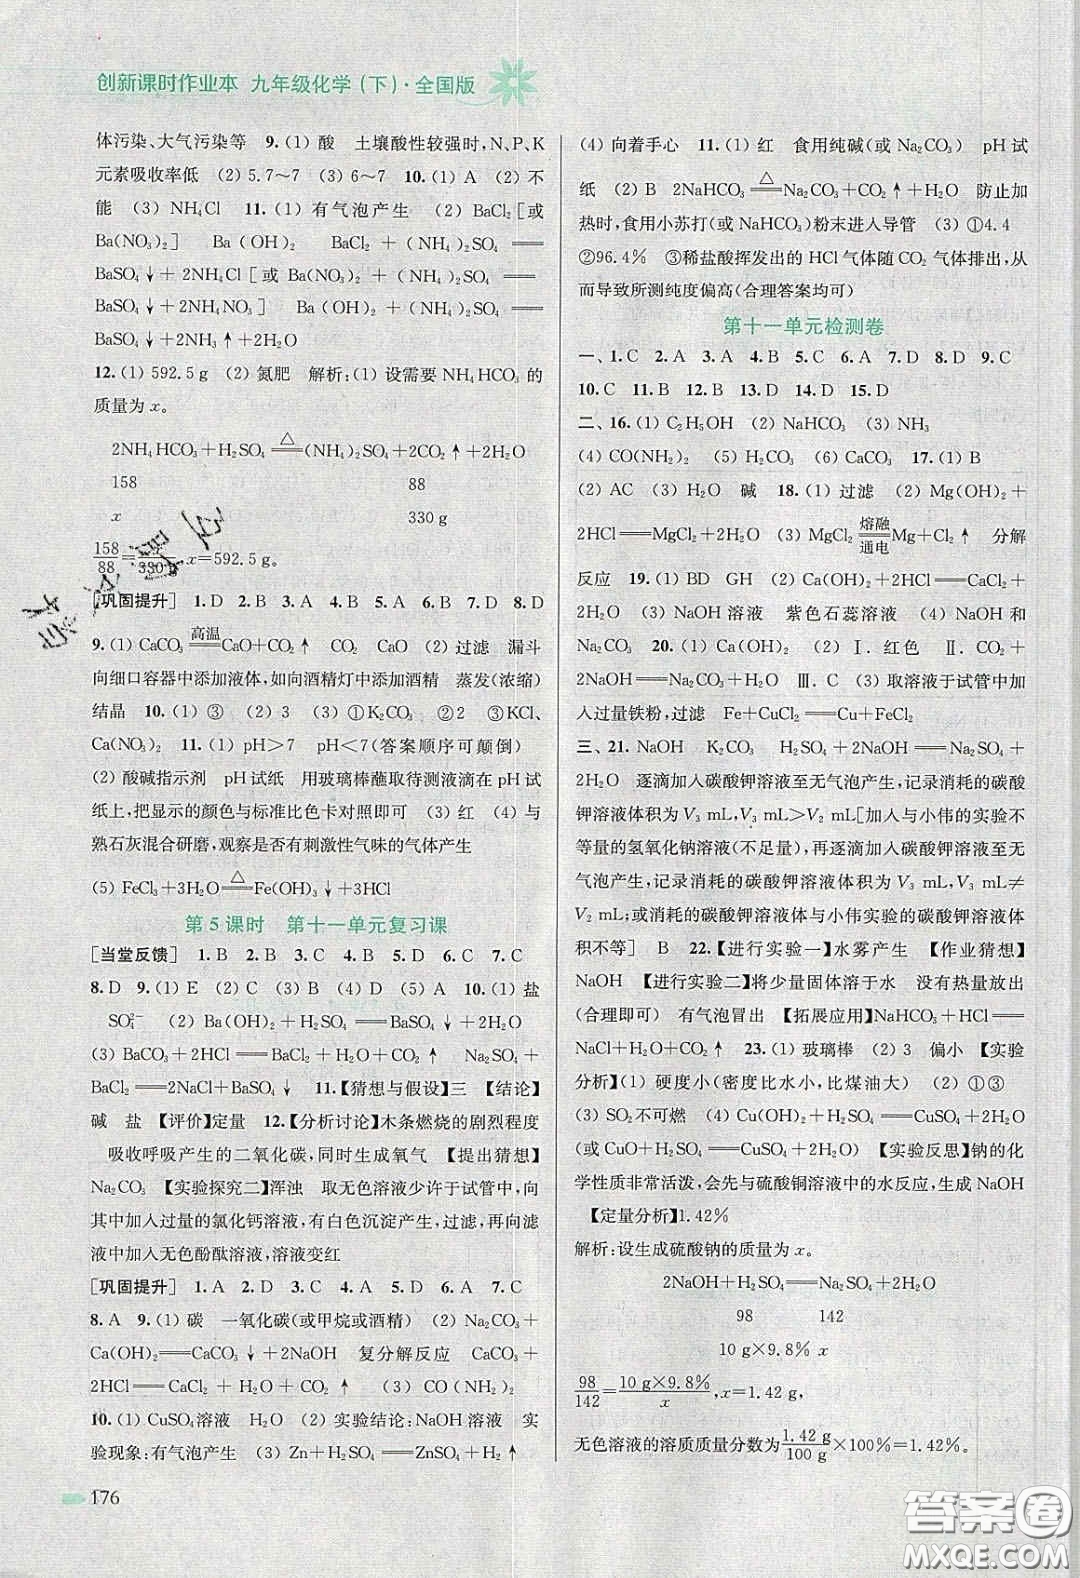 创新课时作业本 九年级化学(下)·全国版
体污染、大气污染等 9.(1) 酸 土壤酸性较强时,N、P、K
元素吸收率低 (2) 5.7～7 (3) 6～7 10.(1) A (2) 不
能 (3) NH₄Cl 11.(1) 有气泡产生 (2) BaCl₂[或
Ba(NO₃)₂] Ba(OH)₂ BaCl₂+(NH₄)₂SO₄══
BaSO₄↓+2NH₄Cl[或 Ba(NO₃)₂+(NH₄)₂SO₄══
BaSO₄↓+2NH₄NO₃] Ba(OH)₂+(NH₄)₂SO₄══
BaSO₄↓+2NH₃↑+2H₂O
12.(1) 592.5 g (2) 氮肥 解析:(1) 设需要 NH₄HCO₃ 的
质量为 x。
2NH₄HCO₃+H₂SO₄══(△)(NH₄)₂SO₄+2CO₂↑+2H₂O
158 88
x 330 g
158/88=x/330 g,x=592.5 g。
[巩固提升] 1.D 2.B 3.A 4.B 5.A 6.D 7.B 8.D
9.(1) CaCO₃══(高温)CaO+CO₂↑ CO₂ CaO (2) 过滤 漏斗
向细口容器中添加液体,如向酒精灯中添加酒精 蒸发(浓缩)
结晶 10.(1) ③ (2) 3 (3) ①K₂CO₃ ②2 ③KCl、
Ca(NO₃)₂ 11.(1) pH＞7 pH＜7(答案顺序可颠倒)
(2) 酸碱指示剂 pH试纸 用玻璃棒蘸取待测液滴在pH试
纸上,把显示的颜色与标准比色卡对照即可 (3) 红 (4) 与
熟石灰混合研磨,观察是否有刺激性气味的气体产生
(5) FeCl₃+3H₂O══(△)Fe(OH)₃↓+3HCl↑
第5课时 第十一单元复习课
[当堂反馈] 1.B 2.B 3.C 4.B 5.C 6.C 7.C
8.D 9.(1) E (2) C (3) B (4) D (5) A 10.(1) 盐
SO₄²⁻ (2) Ba(OH)₂+H₂SO₄══BaSO₄↓+2H₂O
(3) BaCO₃+2HCl══BaCl₂+H₂O+CO₂↑ Na₂SO₄+
BaCl₂══2NaCl+BaSO₄↓ 11.【猜想与假设】三 【结论】
碱 盐 【评价】定量 12.【分析讨论】木条燃烧的剧烈程度
吸收呼吸产生的二氧化碳,同时生成氧气 【提出猜想】
Na₂CO₃ 【实验探究二】浑浊 取无色溶液少许于试管中,向
其中加入过量的氯化钙溶液,有白色沉淀产生,过滤,再向滤
液中加入无色酚酞溶液,溶液变红
[巩固提升] 1.A 2.D 3.C 4.A 5.C 6.A 7.C
8.A 9.(1) 碳 一氧化碳(或甲烷或酒精) (2) Na₂CO₃+
Ca(OH)₂══CaCO₃↓+2NaOH 复分解反应 CaCO₃+
2HCl══CaCl₂+H₂O+CO₂↑ (3) CO(NH₂)₂
10.(1) CuSO₄溶液 H₂O (2) 实验结论:NaOH溶液 实
验现象:有气泡产生 (3) Zn+H₂SO₄══ZnSO₄+H₂↑
176
(4) 向着手心 11.(1) 红 食用纯碱(或Na₂CO₃) pH试
纸 (2) B 2NaHCO₃══(△)Na₂CO₃+CO₂↑+H₂O 防止加
热时,食用小苏打(或NaHCO₃)粉末进入导管 (3) ①4.4
②96.4% ③稀盐酸挥发出的HCl气体随CO₂气体排出,从
而导致所测纯度偏高(合理答案均可)
第十一单元检测卷
一、1.C 2.A 3.A 4.B 5.C 6.A 7.D 8.D 9.C
10.C 11.B 12.B 13.D 14.D 15.D
二、16.(1) C₂H₅OH (2) NaHCO₃ (3) NH₃
(4) CO(NH₂)₂ (5) H₂CO₃ (6) CaCO₃ 17.(1) B
(2) AC (3) H₂O 碱 18.(1) 过滤 (2) Mg(OH)₂+
2HCl══MgCl₂+2H₂O (3) MgCl₂══(熔融 通电)Mg+Cl₂↑ 分解
反应 19.(1) BD GH (2) Ca(OH)₂+2HCl══CaCl₂+
2H₂O (3) NaOH溶液 紫色石蕊溶液 (4) NaOH和
Na₂CO₃ 20.(1) Ca(OH)₂ (2) Ⅰ.红色 Ⅱ.CO₂+
2NaOH══Na₂CO₃+H₂O Ⅲ.C (3) 取溶液于试管中加
入过量铁粉,过滤 Fe+CuCl₂══Cu+FeCl₂
三、21.NaOH K₂CO₃ H₂SO₄+2NaOH══Na₂SO₄+
2H₂O 逐滴加入碳酸钾溶液至无气泡产生,记录消耗的碳酸
钾溶液体积为V₃ mL,V₃ mL＞V₂ mL[加入与小伟的实验不
等量的氢氧化钠溶液(不足量),再逐滴加入碳酸钾溶液至无
气泡产生,记录消耗的碳酸钾溶液体积为V₃ mL,V₃ mL≠
V₂ mL;或消耗的碳酸钾溶液体积与小伟实验的碳酸钾溶液
体积不等] B 22.【进行实验一】水雾产生 【作业猜想】
NaOH 【进行实验二】将少量固体溶于水 没有热量放出
(合理即可) 有气泡冒出 【拓展应用】NaHCO₃+HCl══
NaCl+H₂O+CO₂↑ 23.(1) 玻璃棒 (2) 3 偏小 【实验
分析】(1) 硬度小(密度比水小,比煤油大) (2) ①③
(3) SO₂不可燃 (4) Cu(OH)₂+H₂SO₄══CuSO₄+2H₂O
(或CuO+H₂SO₄══CuSO₄+H₂O) 【实验反思】钠的化
学性质非常活泼,会先与硫酸铜溶液中的水反应,生成NaOH
【定量分析】1.42%
解析:设生成硫酸钠的质量为x。
2NaOH+H₂SO₄══Na₂SO₄+2H₂O
98 142
10 g×9.8% x
98/142=10 g×9.8%/x,x=1.42 g,
无色溶液的溶质质量分数为1.42 g/100 g×100%=1.42%。
答案圈
MXQE.COM